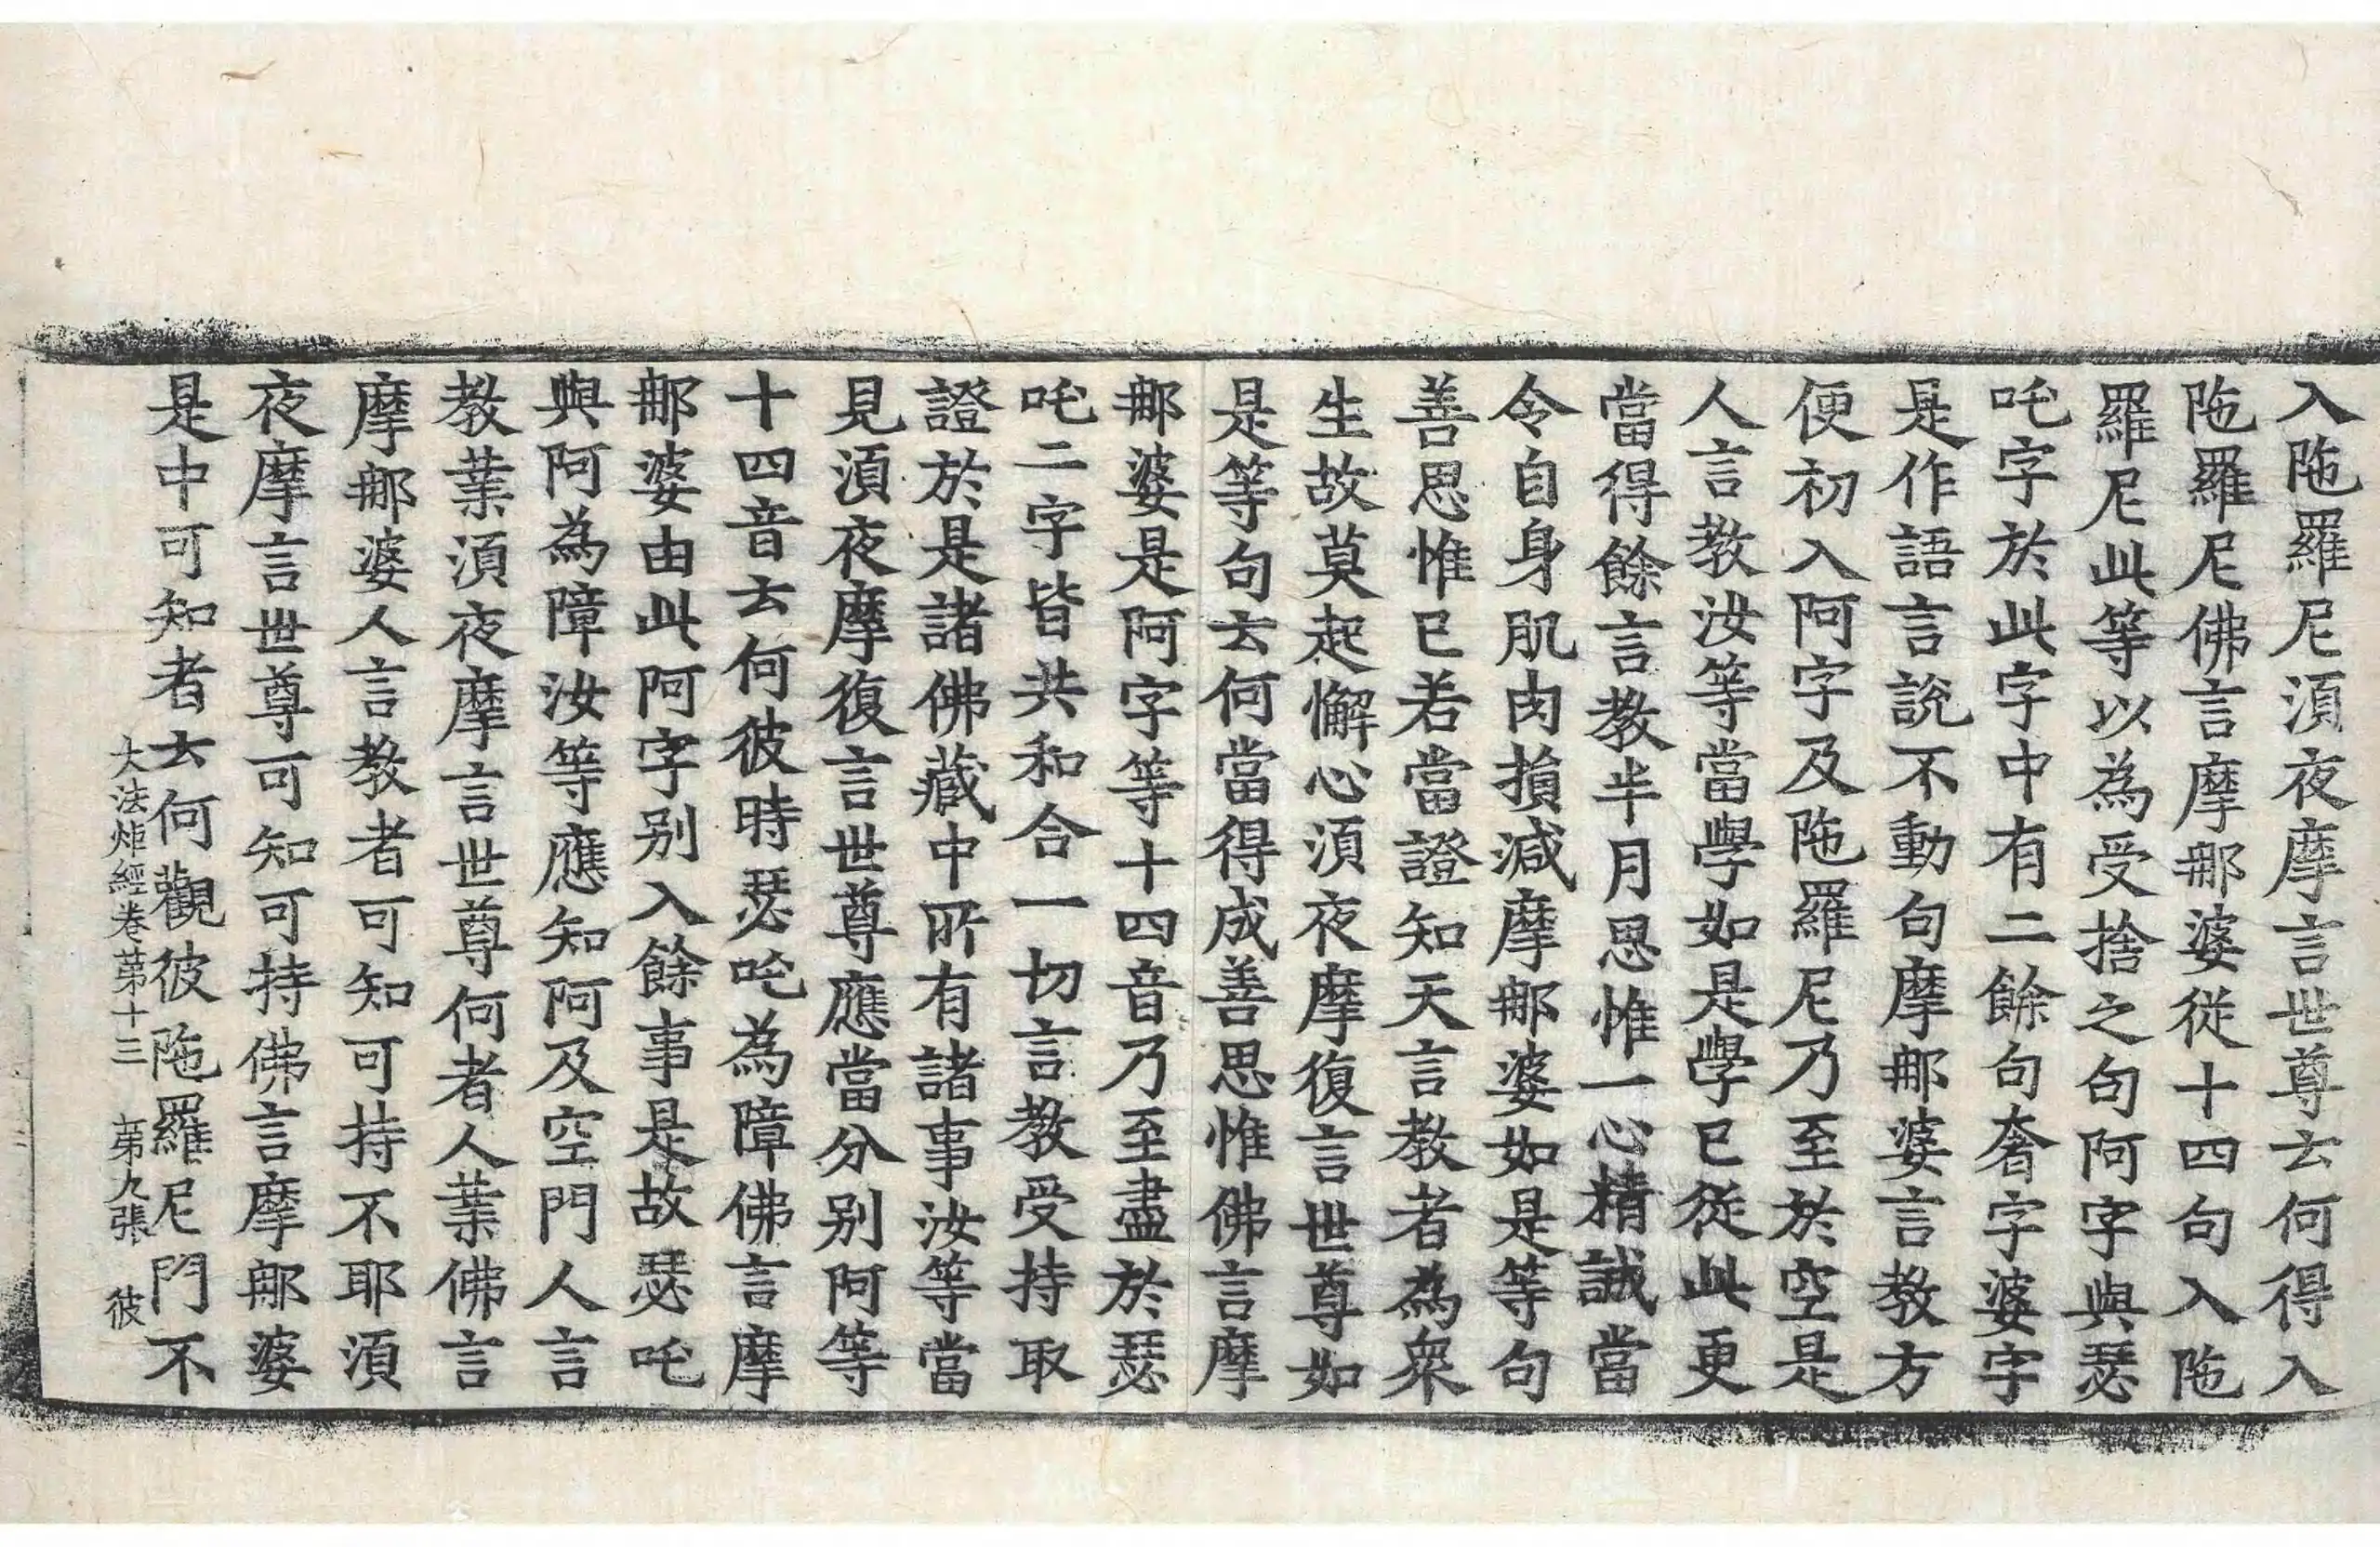 入陁羅尼湏夜摩言世尊云何得入
陁羅尼佛言摩那婆從十四句入陁
羅尼此等以為受捨之句阿字與瑟
吒字於此字中有二餘句奢字婆字
是作語言說不動句摩那婆言教方
便初入阿字及陁羅尼乃至於空是
人言教汝等當學如是學已從此更
當得餘言教半月思惟一心精誠當
令自身肌肉損減摩那婆如是等句
善思惟已若當證知天言教者為衆
生故莫起懈心湏夜摩復言世尊如
是等句云何當得成善思惟佛言摩
那婆是阿字等十四音乃至盡於瑟
吒二字皆共和合一切言教受持取
證於是諸佛藏中所有諸事汝等當
見湏夜摩復言世尊應當分別阿等
十四音云何彼時瑟吒為障佛言摩
那婆由此阿字別入餘事是故瑟吒
與阿為障汝等應知阿及空門人言
教業湏夜摩言世尊何者人業佛言
摩那婆人言教者可知可持不耶湏
夜摩言世尊可知可持佛言摩那婆
是中可知者云何觀彼陁羅尼門不
大法炬經卷第十三 第九張 彼